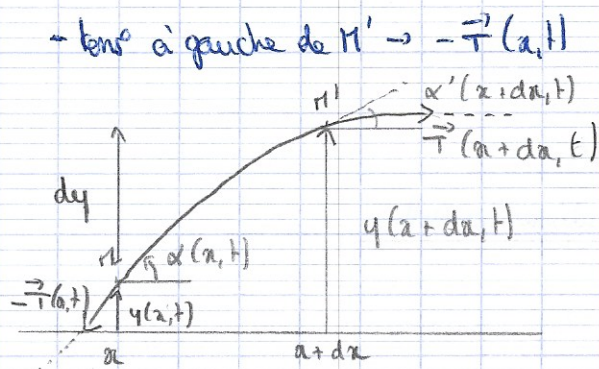 - tens° à gauche de M' → - T⃗ (x,t)
M'
α'(x+dx,t)
T⃗ (x+dx, t)
dy
y(x+dx,t)
M
α(x,t)
- T⃗(x,t)
y(x,t)
x
x+dx